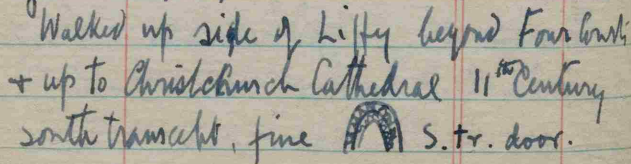 Walked up side of Liffy beyond Four Courts
+ up to Christchurch Cathedral 11th Century
south transcept, fine S. tr. door.